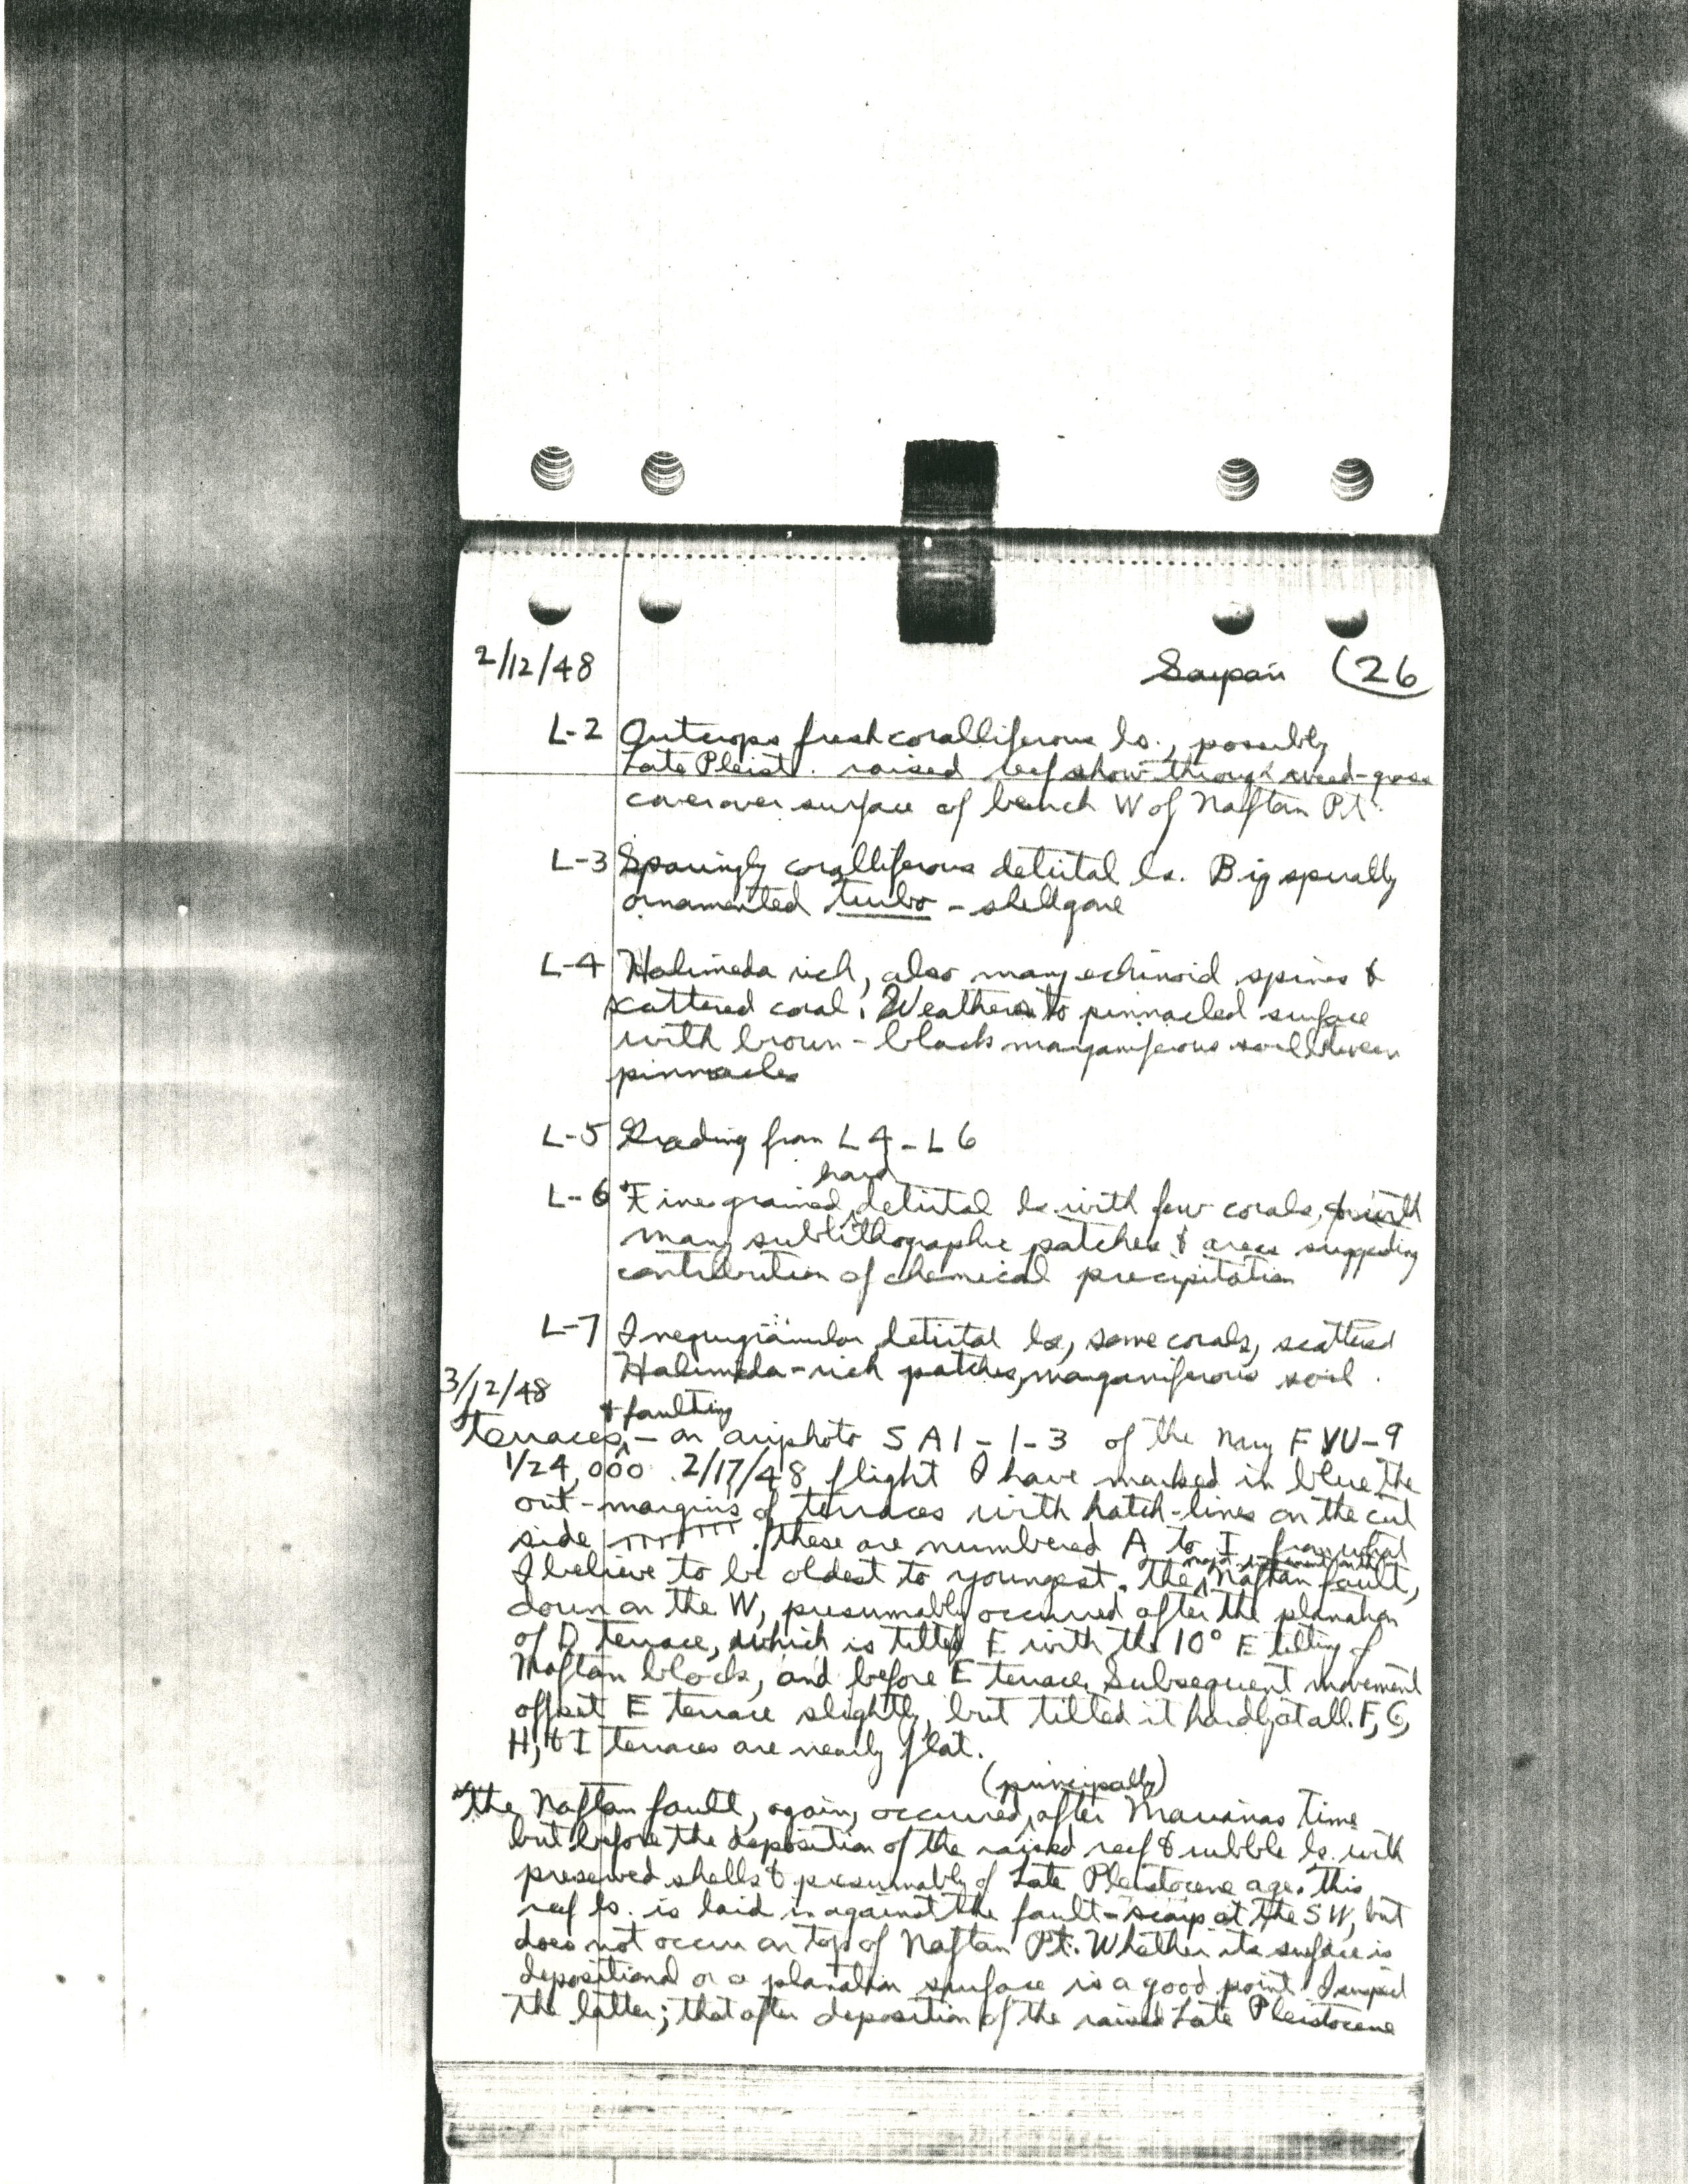 2/12/48 Saipan (26
L-2 Outcrops fresh coralliferous ls., possibly
Late Pleist. raised reef show through weed-grass
cover over surface of bench W of Naftan Pt.
L-3 Sparingly coralliferous detrital ls. Big spirally
ornamented turbo - shell gone
L-4 Halimeda rich, also many echinoid spines &
scattered coral. Weathers to pinnacled surface
with brown-black manganiferous soil between
pinnacles
L-5 Grading from L4 - L6
hard
L-6 Fine grained, detrital ls with few corals, & with
many sublithographic patches & areas suggesting
contribution of chemical precipitation
L-7 Inequigranular detrital ls, some corals, scattered
Halimeda-rich patches, manganiferous soil.
3/12/48
& faulting
Terraces - on airphoto SA1-1-3 of the Navy FVU-9
1/24,000 2/17/48 flight I have marked in blue the
out-margins of terraces with hatch-lines on the cut
side . These are numbered A to I from what
major movement on the
I believe to be oldest to youngest. The Naftan fault,
down on the W, presumably occurred after the planation
of D terrace, which is tilted E with the 10° E tilting of
Naftan block, and before E terrace. Subsequent movement
offset E terrace slightly, but tilted it hardly at all. F, G,
H, & I terraces are nearly flat.
(principally)
The Naftan fault, again, occurred after Marianas time
but before the deposition of the raised reef & rubble ls. with
preserved shells & presumably of Late Pleistocene age. This
reef ls. is laid in against the fault-scarp at the SW, but
does not occur on top of Naftan Pt. Whether its surface is
depositional or a planation surface is a good point. I suspect
the latter; that after deposition of the raised Late Pleistocene